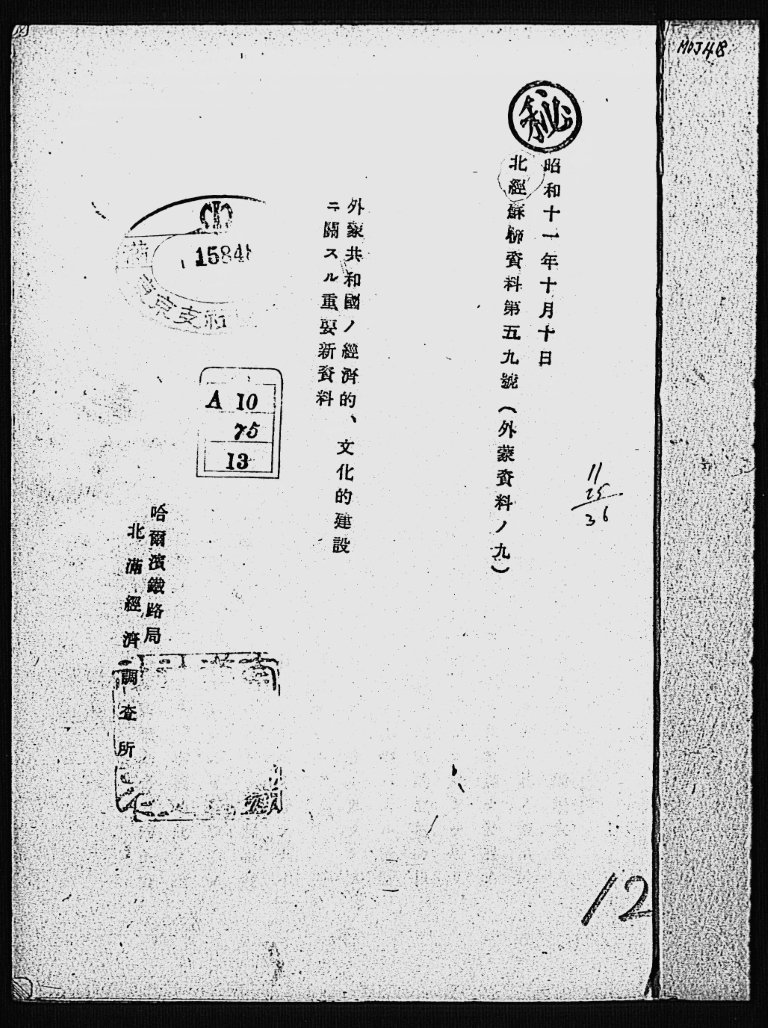 MOJ48
秘
昭和十一年十月十日
北經蘇聯資料第五九號（外蒙資料ノ九）
11
25
36
外蒙共和國ノ經濟的、文化的建設
ニ關スル重要新資料
15848
京支
A 10
75
13
哈爾濱鐵路局
北滿經濟調查所
12